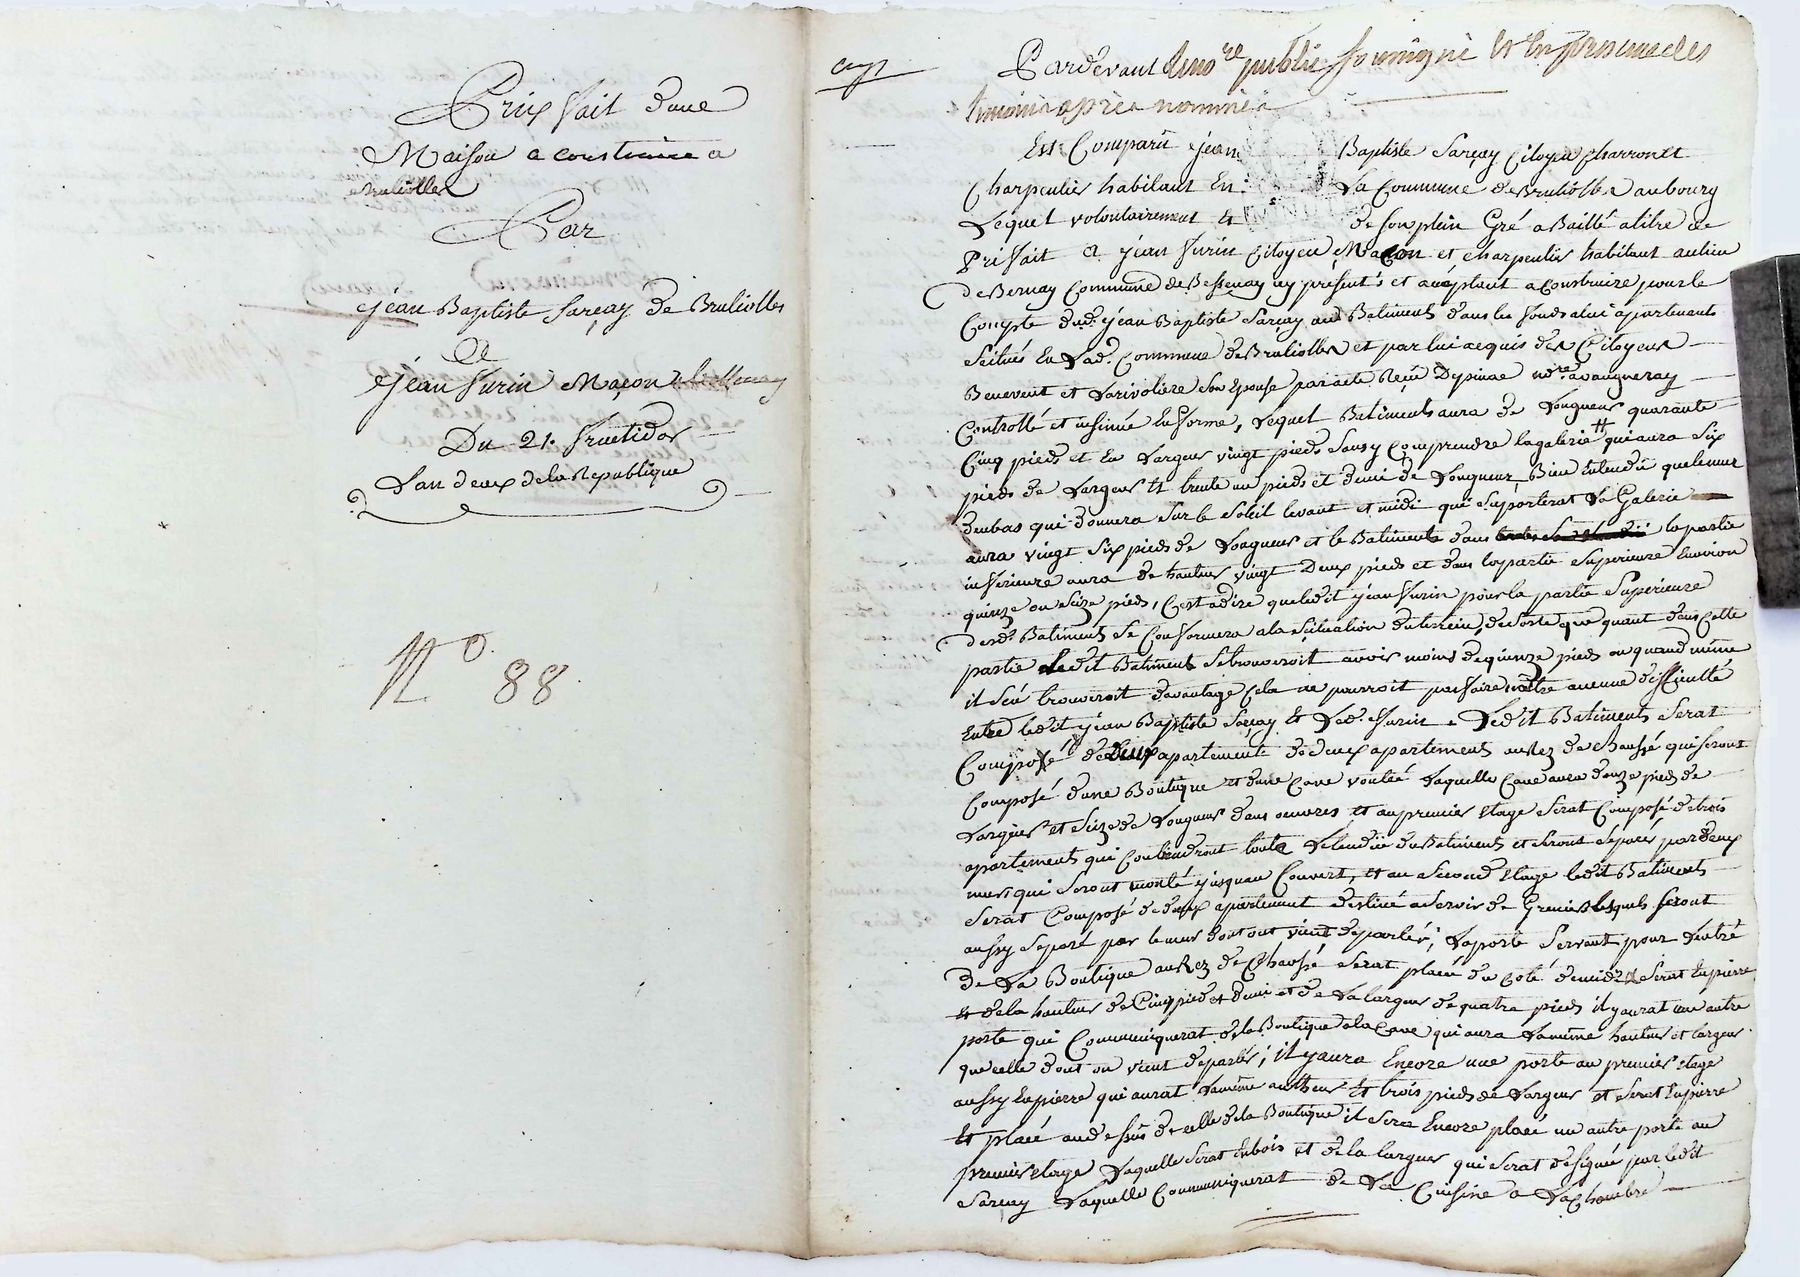 Prix fait d'une
Maison a construire a
Bruliolles
Par
jean Baptiste Sarçay de Bruliolles
A
jean Furin Maçon
Du 21. fructidor
Lan deux de la Republique
N° 88
Pardevant Le no.re public soussigné Et En presence des
temoins après nommés
Est Comparu jean Baptiste Sarçay Citoyen charron et
Charpentier habitant En La Commune de Brulioles au bourg
Lequel volontairement Et de son plein Gré a Baillé a titre de
Prifait A jean Furin Citoyen Maçon et charpentier habitant au lieu
de Bernay Commune de Bessenay icy présent et acceptant a Construire pour le
Compte dud. jean Baptiste Sarçay un Batiments dans les fonds a lui apartenants
Scitués En Lad. Commune de Bruliolles et par lui acquis des Citoyens
Benevent et Larivoliere Son Epouse par acte Reçu Dépinae no.re a vaugneray
Controllé et insinué En forme, Lequel Batiments aura de Longueur quarante
Cinq pieds et En Largeur vingt pieds Sans y Comprendre la galerie qui aura Six
pieds de Largeur Et trente un pieds et demi de Longueur Bien Entendu que le mur
d'enbas qui donnera Sur le Soleil levant et midi qui Suporterat La Galerie
aura vingt Six pieds de Longueur et le Batiments dans la partie
inferieure aura de hauteur vingt Deux pieds et dans la partie Superieure Environ
quinze ou Seize pieds, C'est a dire que ledit jean Furin pour la partie Superieure
desd. Batiments Se Conformera a la Scituation du terrein, de Sorte que quant dans Cette
partie Ledit Batiments Se trouveroit avoir moins de quinze pieds ou quand même
il S'en trouveroit davantage Cela ne pourroit pas faire naître aucune difficulté
Entre ledit jean Baptiste Sarçay Et Led. Furin. Ledit Batiments Serat
Composé de deux apartements de deux apartements au Rez de chaussé qui seront
Composé d'une Boutique et d'une Cave voutée Laquelle Cave aura douze pieds de
Largeur et Seize de Longueur dans oeuvres et au premier Etage Serat Composé de trois
apartements qui Contiendront toute L'étendüe du Batiments et Seront Séparés par deux
murs qui Seront monté jusqu'au Couvert, et au Second Etage ledit Batiments
Serat Composé de deux apartement destiné a Servir de Greniers lesquels Seront
aussy Séparé par le mur dont ont vient de parler; La porte Servant pour L'entré
de La Boutique au Rez de Chaussé Serat placé du Coté de midi Et Serat En pierre
Et de la hauteur de Cinq pieds et demi et de La largeur de quatre pieds il y aurat une autre
porte qui Communiquerat de la Boutique a la Cave qui aura La même hauteur et largeur
que celle dont on vient de parler; il y aura Encore une porte au premier Etage
aussy En pierre qui aurat La même autheur Et trois pieds de Largeur et Serat En pierre
Et placé au dessus de celle de la Boutique il Sera Encore placé un autre porte au
premier Etage Laquelle Serat En bois et de la largeur qui Serat désignée par ledit
Sarçay Laquelle Communiquerat de La Cuisine a La chambre